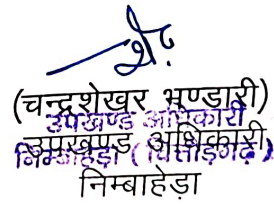 (चन्द्रशेखर भण्डारी)
उपखण्ड अधिकारी
उपखण्ड अधिकारी
निम्बाहेड़ा (चित्तौड़गढ़)
निम्बाहेड़ा